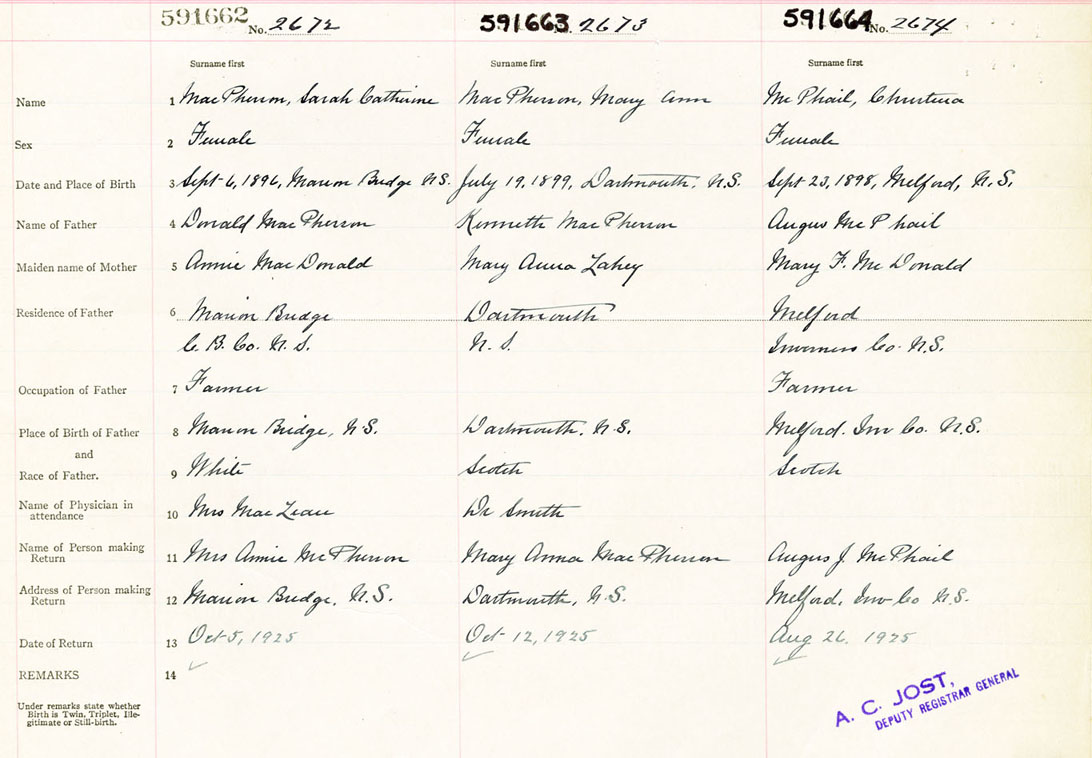 591662 No. 2672 591663 No. 2673 591664 No. 2674
Surname first Surname first Surname first
Name 1 MacPherson, Sarah Catherine MacPherson, Mary Ann McPhail, Christina
Sex 2 Female Female Female
Date and Place of Birth 3 Sept 6, 1896, Marion Bridge N.S. July 19, 1899, Dartmouth, N.S. Sept 23, 1898, Melford, N.S.
Name of Father 4 Donald MacPherson Kenneth MacPherson Angus McPhail
Maiden name of Mother 5 Annie MacDonald Mary Anna Lahey Mary F. McDonald
Residence of Father 6 Marion Bridge Dartmouth Melford
C. B. Co. N. S. N. S. Inverness Co. N.S.
Occupation of Father 7 Farmer Farmer
Place of Birth of Father 8 Marion Bridge, N.S. Dartmouth, N.S. Melford. Inv Co. N.S.
and
Race of Father. 9 White Scotch Scotch
Name of Physician in
attendance 10 Mrs MacLean Dr Smith
Name of Person making
Return 11 Mrs Annie McPherson Mary Anna MacPherson Angus J. McPhail
Address of Person making
Return 12 Marion Bridge, N.S. Dartmouth, N.S. Melford, Inv Co N.S.
Date of Return 13 Oct 5, 1925 Oct 12, 1925 Aug 26. 1925
REMARKS 14
Under remarks state whether
Birth is Twin, Triplet, Ille-
gitimate or Still-birth.
A. C. JOST,
DEPUTY REGISTRAR GENERAL